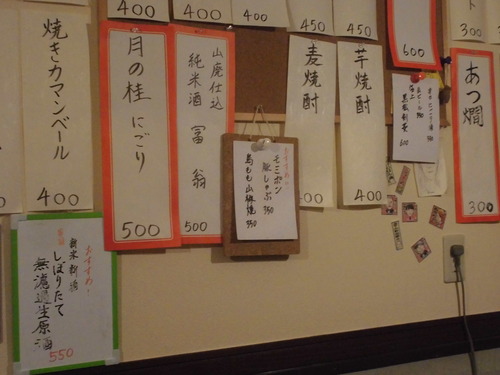 400
400
400
450
450
300
焼きカマンベール
400
月の桂 にごり
500
山廃仕込
純米酒 冨翁
500
おすすめ!
モミポン
豚しゃぶ 350
鳥もも山椒焼
350
麦焼酎
400
芋焼酎
400
600
600
あつ燗
300
おすすめ!
新米新酒
しぼりたて
無濾過生原酒
550